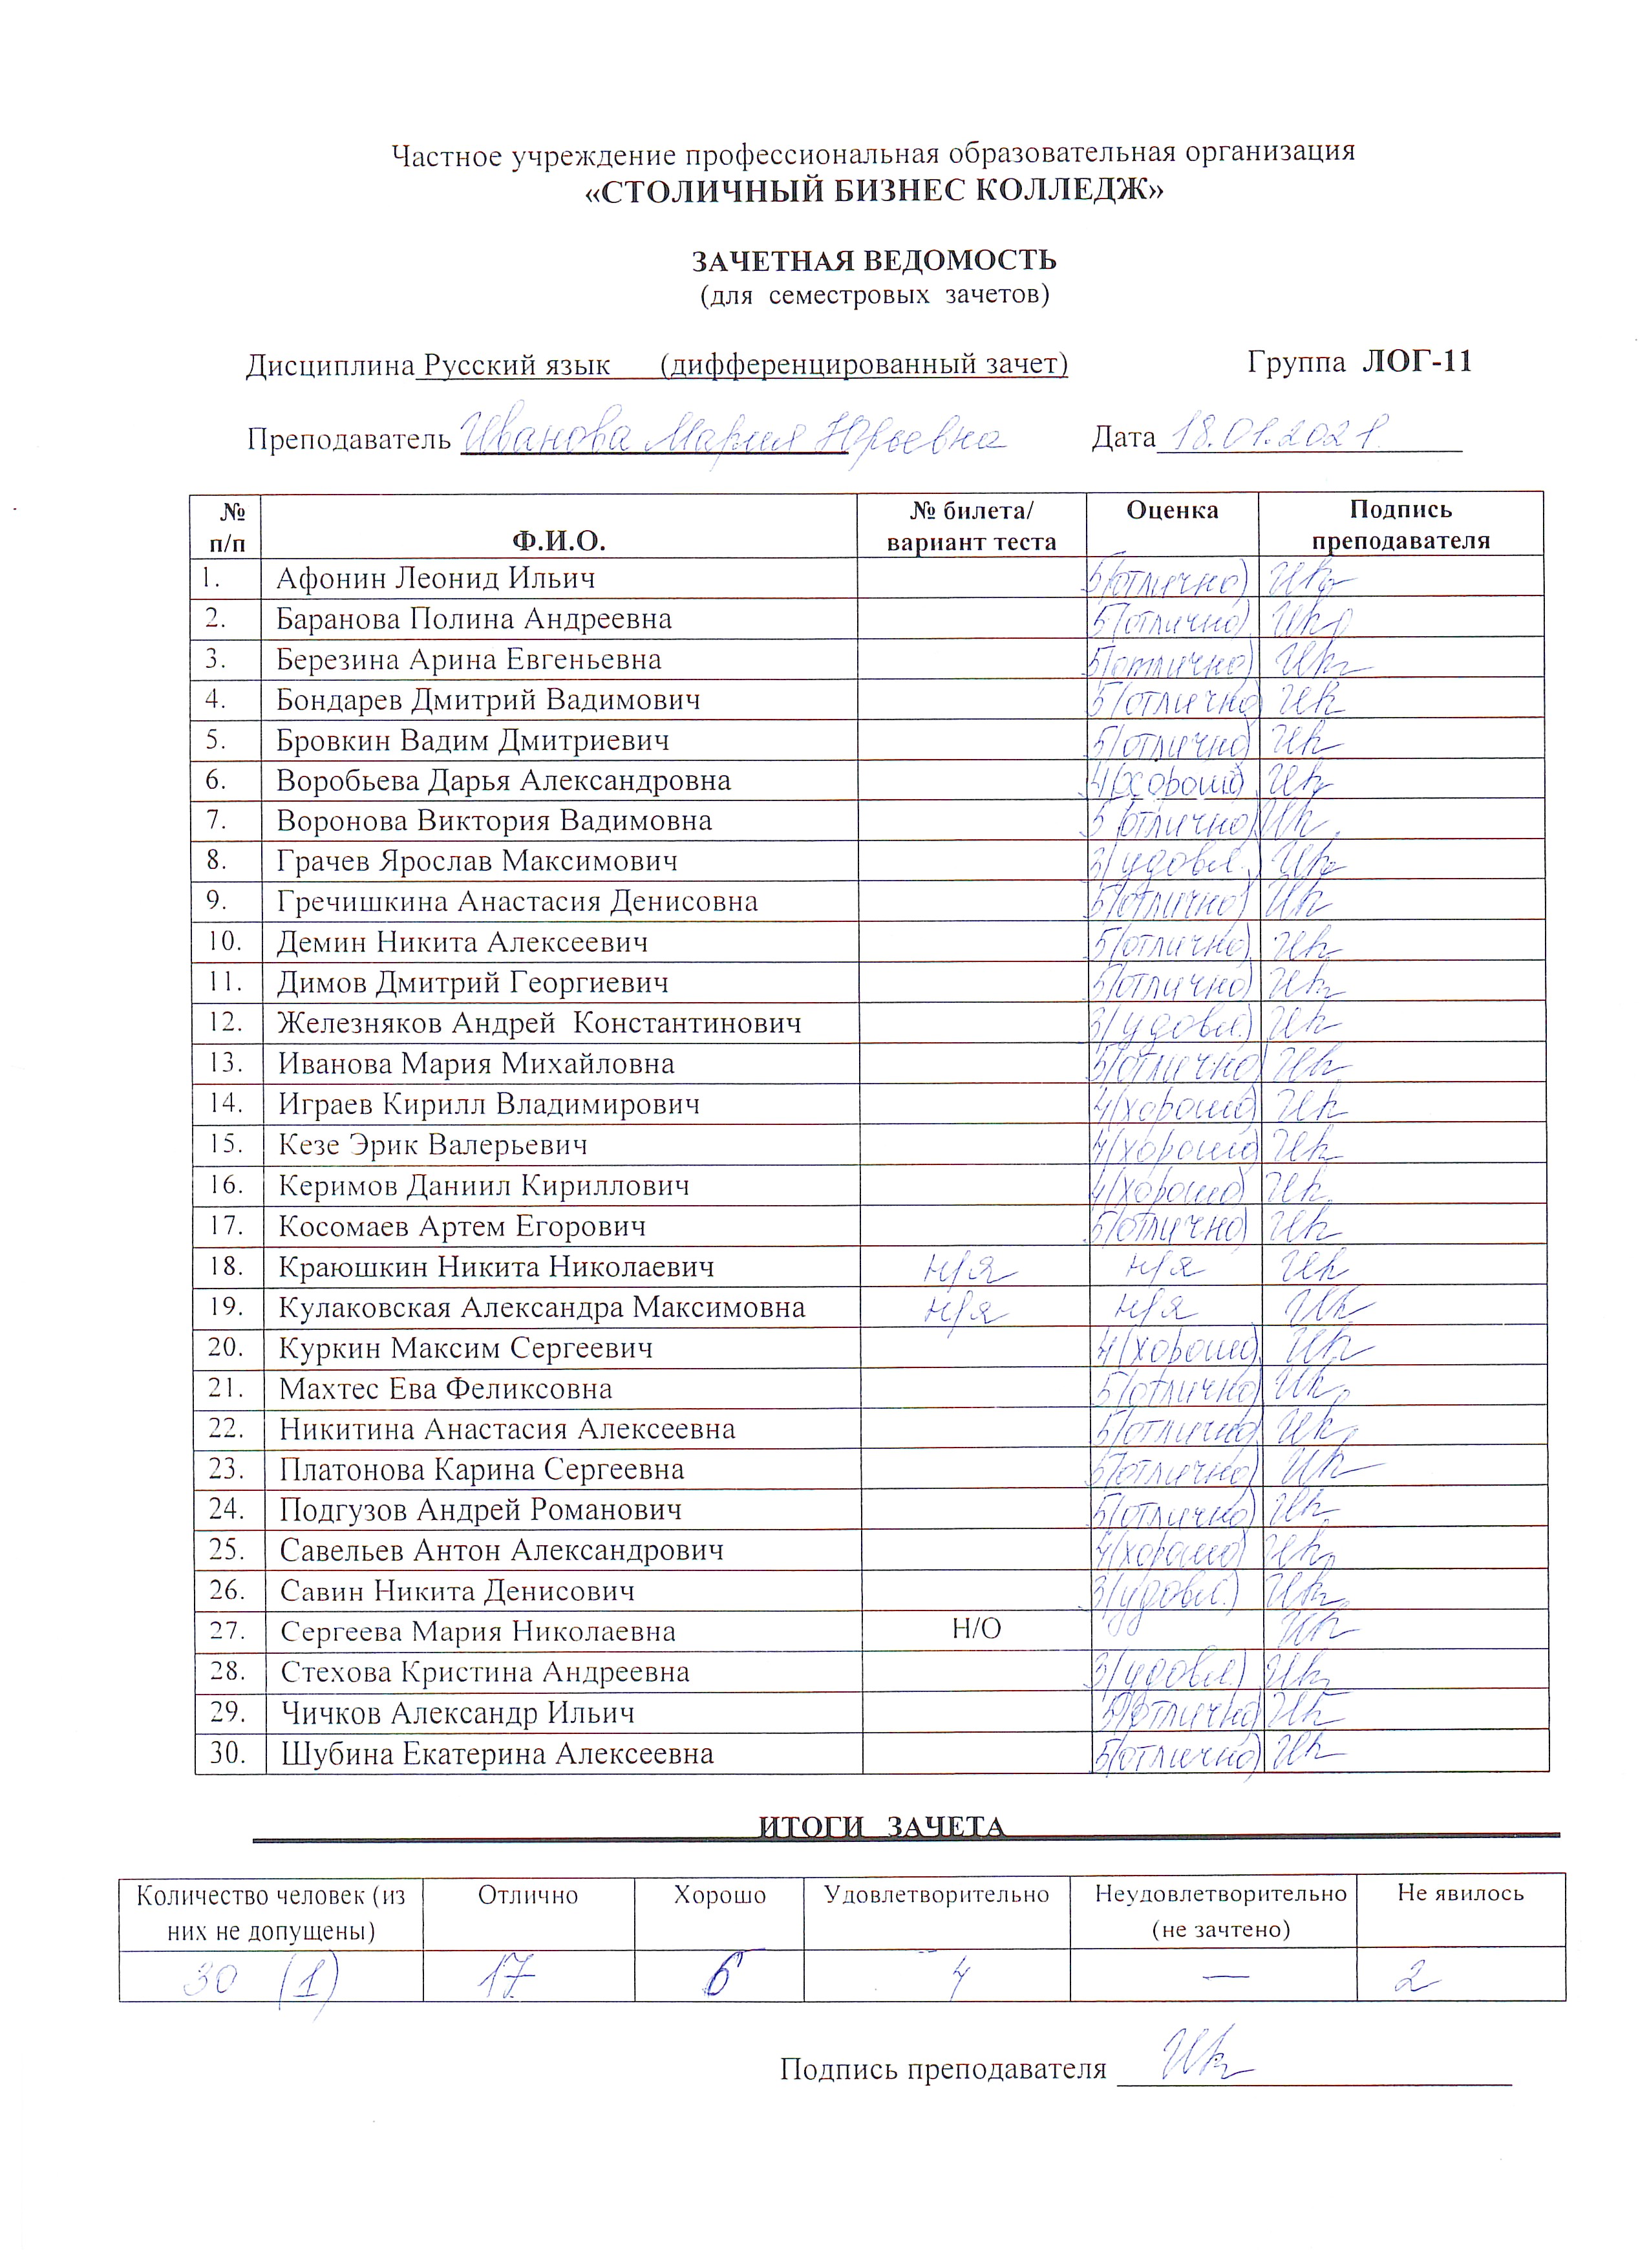 Частное учреждение профессиональная образовательная организация
«СТОЛИЧНЫЙ БИЗНЕС КОЛЛЕДЖ»
ЗАЧЕТНАЯ ВЕДОМОСТЬ
(для семестровых зачетов)
Дисциплина Русский язык (дифференцированный зачет) Группа ЛОГ-11
Преподаватель Иванова Мария Юрьевна Дата 18.01.2021.
№ п/п Ф.И.О. № билета/ вариант теста Оценка Подпись преподавателя
1. Афонин Леонид Ильич 5(отлично)
2. Баранова Полина Андреевна 5(отлично)
3. Березина Арина Евгеньевна 5(отлично)
4. Бондарев Дмитрий Вадимович 5(отлично)
5. Бровкин Вадим Дмитриевич 5(отлично)
6. Воробьева Дарья Александровна 4(хорошо)
7. Воронова Виктория Вадимовна 5(отлично)
8. Грачев Ярослав Максимович 3(удовл.)
9. Гречишкина Анастасия Денисовна 5(отлично)
10. Демин Никита Алексеевич 5(отлично)
11. Димов Дмитрий Георгиевич 5(отлично)
12. Железняков Андрей Константинович 3(удовл.)
13. Иванова Мария Михайловна 5(отлично)
14. Играев Кирилл Владимирович 4(хорошо)
15. Кезе Эрик Валерьевич 4(хорошо)
16. Керимов Даниил Кириллович 4(хорошо)
17. Косомаев Артем Егорович 5(отлично)
18. Краюшкин Никита Николаевич н/я н/я
19. Кулаковская Александра Максимовна н/я н/я
20. Куркин Максим Сергеевич 4(хорошо)
21. Махтес Ева Феликсовна 5(отлично)
22. Никитина Анастасия Алексеевна 5(отлично)
23. Платонова Карина Сергеевна 5(отлично)
24. Подгузов Андрей Романович 5(отлично)
25. Савельев Антон Александрович 4(хорошо)
26. Савин Никита Денисович 3(удовл.)
27. Сергеева Мария Николаевна Н/О
28. Стехова Кристина Андреевна 3(удовл.)
29. Чичков Александр Ильич 5(отлично)
30. Шубина Екатерина Алексеевна 5(отлично)
ИТОГИ ЗАЧЕТА
Количество человек (из них не допущены) Отлично Хорошо Удовлетворительно Неудовлетворительно (не зачтено) Не явилось
30 (1) 17 6 4 — 2
Подпись преподавателя